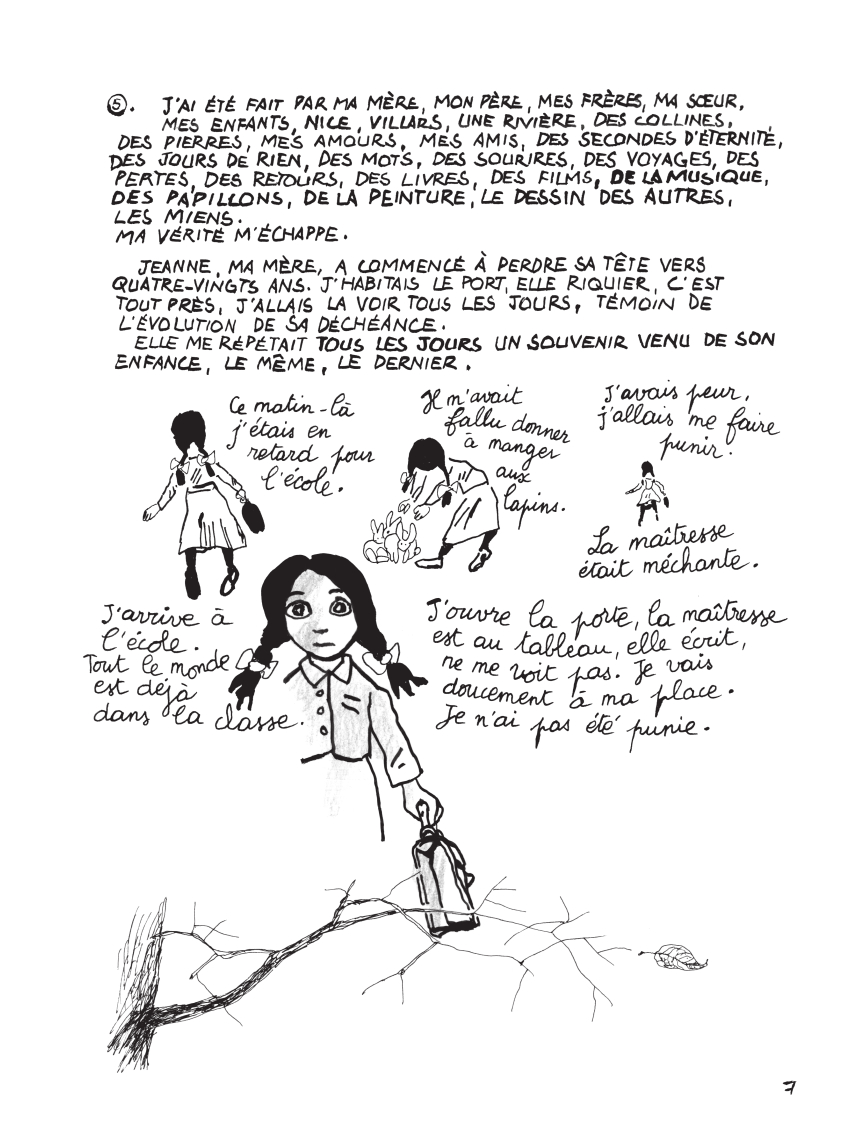 5. J'AI ÉTÉ FAIT PAR MA MÈRE, MON PÈRE, MES FRÈRES, MA SŒUR,
MES ENFANTS, NICE, VILLARS, UNE RIVIÈRE, DES COLLINES,
DES PIERRES, MES AMOURS, MES AMIS, DES SECONDES D'ÉTERNITÉ,
DES JOURS DE RIEN, DES MOTS, DES SOURIRES, DES VOYAGES, DES
PERTES, DES RETOURS, DES LIVRES, DES FILMS, DE LA MUSIQUE,
DES PAPILLONS, DE LA PEINTURE, LE DESSIN DES AUTRES,
LES MIENS.
MA VÉRITÉ M'ÉCHAPPE.
JEANNE, MA MÈRE, A COMMENCÉ À PERDRE SA TÊTE VERS
QUATRE-VINGTS ANS. J'HABITAIS LE PORT, ELLE RIQUIER, C'EST
TOUT PRÈS, J'ALLAIS LA VOIR TOUS LES JOURS, TÉMOIN DE
L'ÉVOLUTION DE SA DÉCHÉANCE.
ELLE ME RÉPÉTAIT TOUS LES JOURS UN SOUVENIR VENU DE SON
ENFANCE, LE MÊME, LE DERNIER.
Ce matin-là
j'étais en
retard pour
l'école.
Il m'avait
fallu donner
à manger
aux
lapins.
J'avais peur,
j'allais me faire
punir.
La maîtresse
était méchante.
J'arrive à
l'école.
Tout le monde
est déjà
dans la classe.
J'ouvre la porte, la maîtresse
est au tableau, elle écrit,
ne me voit pas. Je vais
doucement à ma place.
Je n'ai pas été punie.
7